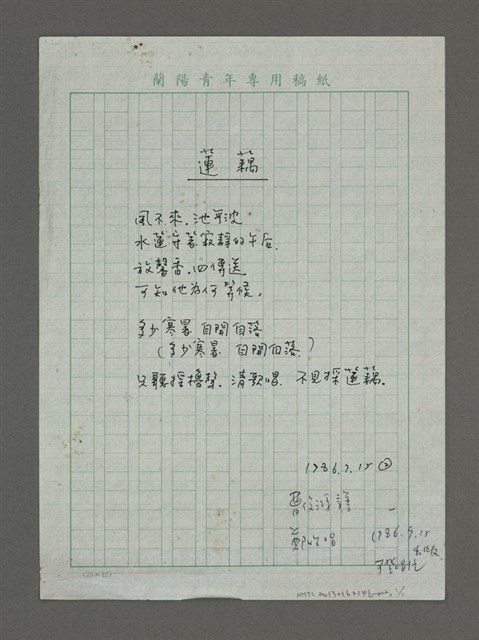 蘭陽青年專用稿紙
蓮藕
風不來．池平波
水蓮守著寂靜的午后．
放馨香．四傳送
可知他為何等候．
多少寒暑 自開自落
（多少寒暑 自開自落）
只聽搖櫓聲．清歌唱． 不見採蓮藕．
1986.7.15 ②
1986.9.15
(25×12)